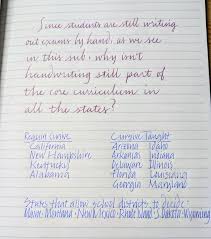 Since students are still writing
out exams by hand, as we see
in this sub, why isn't
handwriting still part of
the core curriculum in
all the states?
Require Cursive
California
New Hampshire
Kentucky
Alabama
Cursive Taught
Arizona Idaho
Arkansas Indiana
Delaware Illinois
Florida Louisiana
Georgia Maryland
States that allow school districts to decide:
Maine Montana New Mexico Rhode Island S. Dakota Wyoming